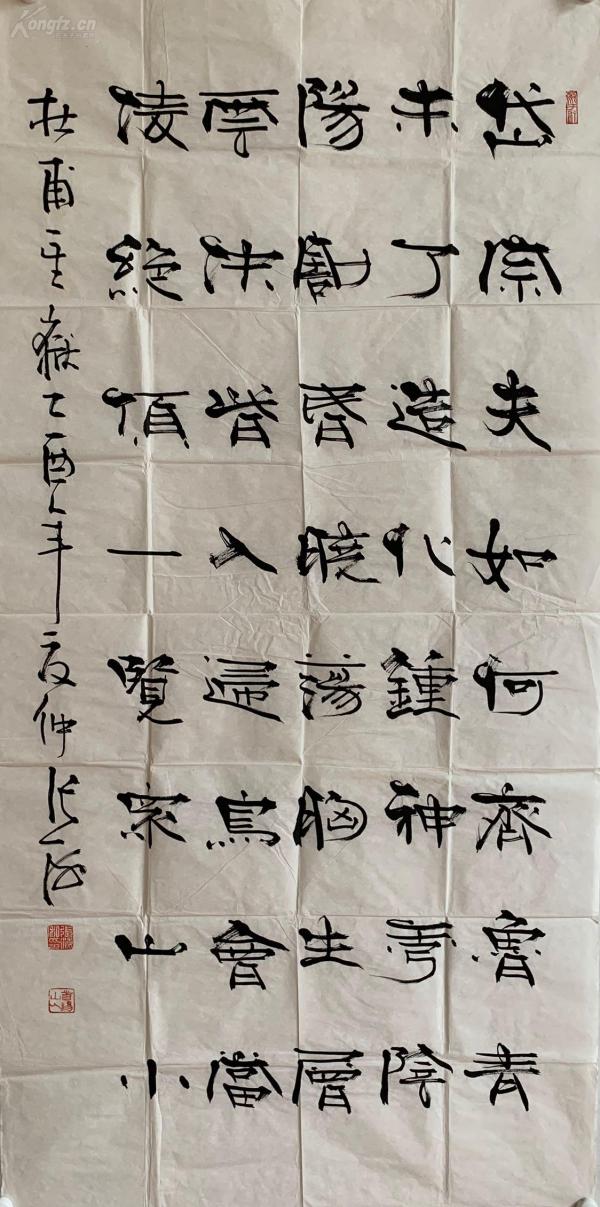 岱宗夫如何齊魯青
未了造化鍾神秀陰
陽割昏曉蕩胸生層
雲決眥入歸鳥會當
凌絕頂一覽眾山小
杜甫望嶽乙酉年夏仲
Kongfz.cn